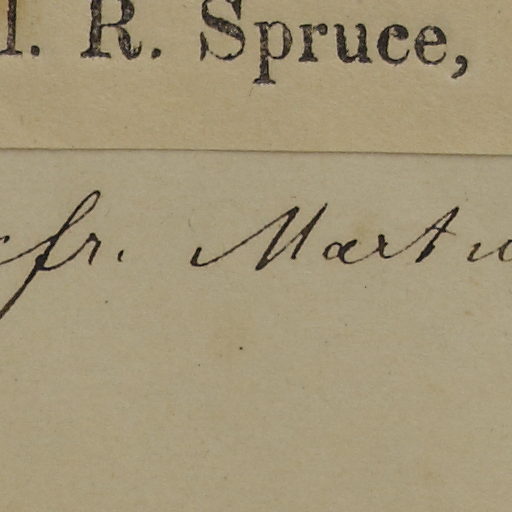 l. R. Spruce,
cfr. Mart